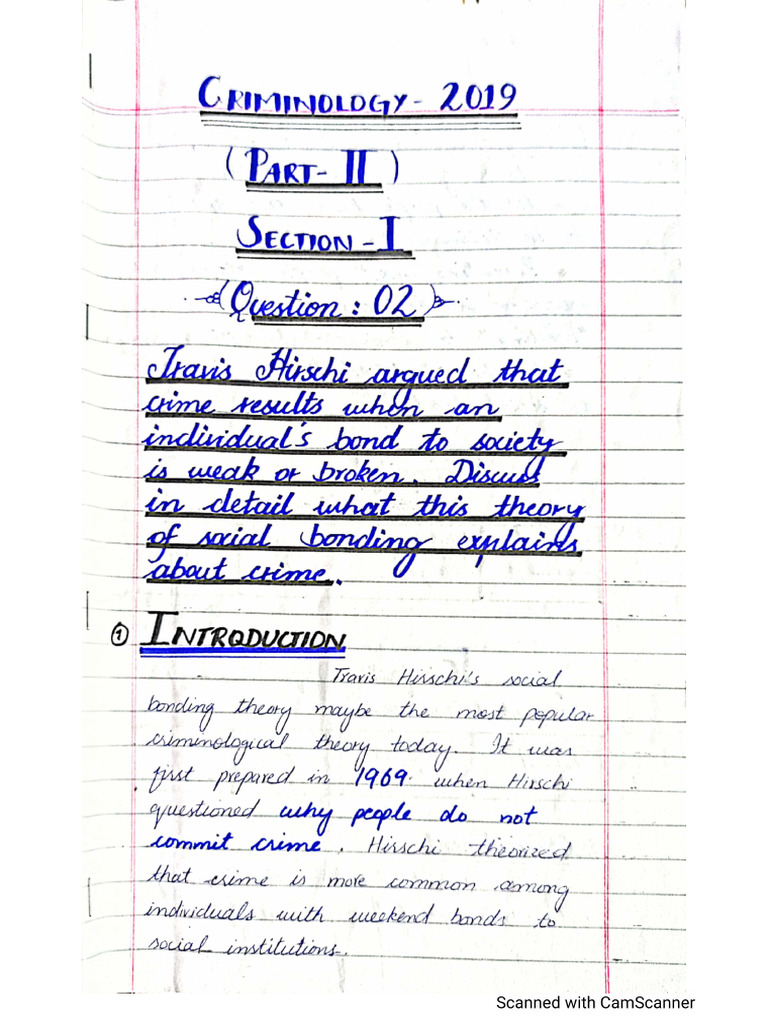 CRIMINOLOGY - 2019
(PART - II)
SECTION - I
(Question : 02)
Travis Hirschi argued that
crime results when an
individual's bond to society
is weak or broken. Discuss
in detail what this theory
of social bonding explains
about crime.
① INTRODUCTION
Travis Hirschi's social
bonding theory maybe the most popular
criminological theory today. It was
first prepared in 1969 when Hirschi
questioned why people do not
commit crime. Hirschi theorized
that crime is more common among
individuals with weekend bonds to
social institutions.
Scanned with CamScanner